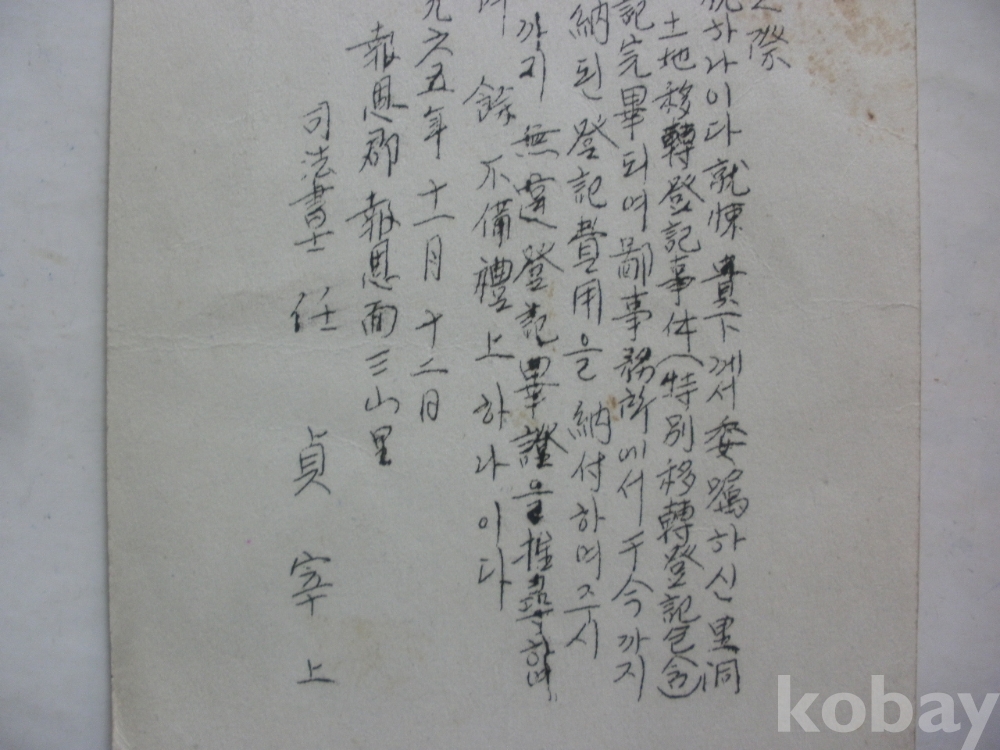 際
하나이다 就悚 貴下게서 委囑하신 里洞
土地移轉登記事件(特別移轉登記包含)
記完畢되여 鄙事務所에서 于今까지
納된 登記費用을 納付하며 주시
까지 無違 登記畢證을 推尋하며
餘 不備禮上 하나이다
九六五年 十一月 十二日
報恩郡 報恩面 三山里
司法書士 任 貞 宰 上
kobay